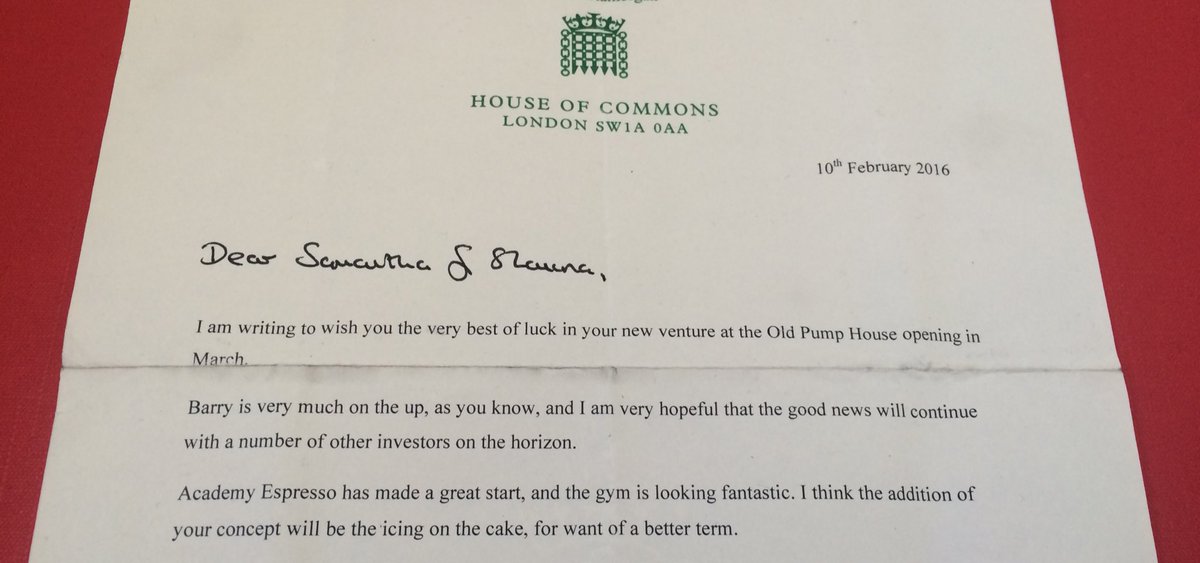 HOUSE OF COMMONS
LONDON SW1A 0AA
10th February 2016
Dear Samantha & Shauna,
I am writing to wish you the very best of luck in your new venture at the Old Pump House opening in
March.
Barry is very much on the up, as you know, and I am very hopeful that the good news will continue
with a number of other investors on the horizon.
Academy Espresso has made a great start, and the gym is looking fantastic. I think the addition of
your concept will be the icing on the cake, for want of a better term.